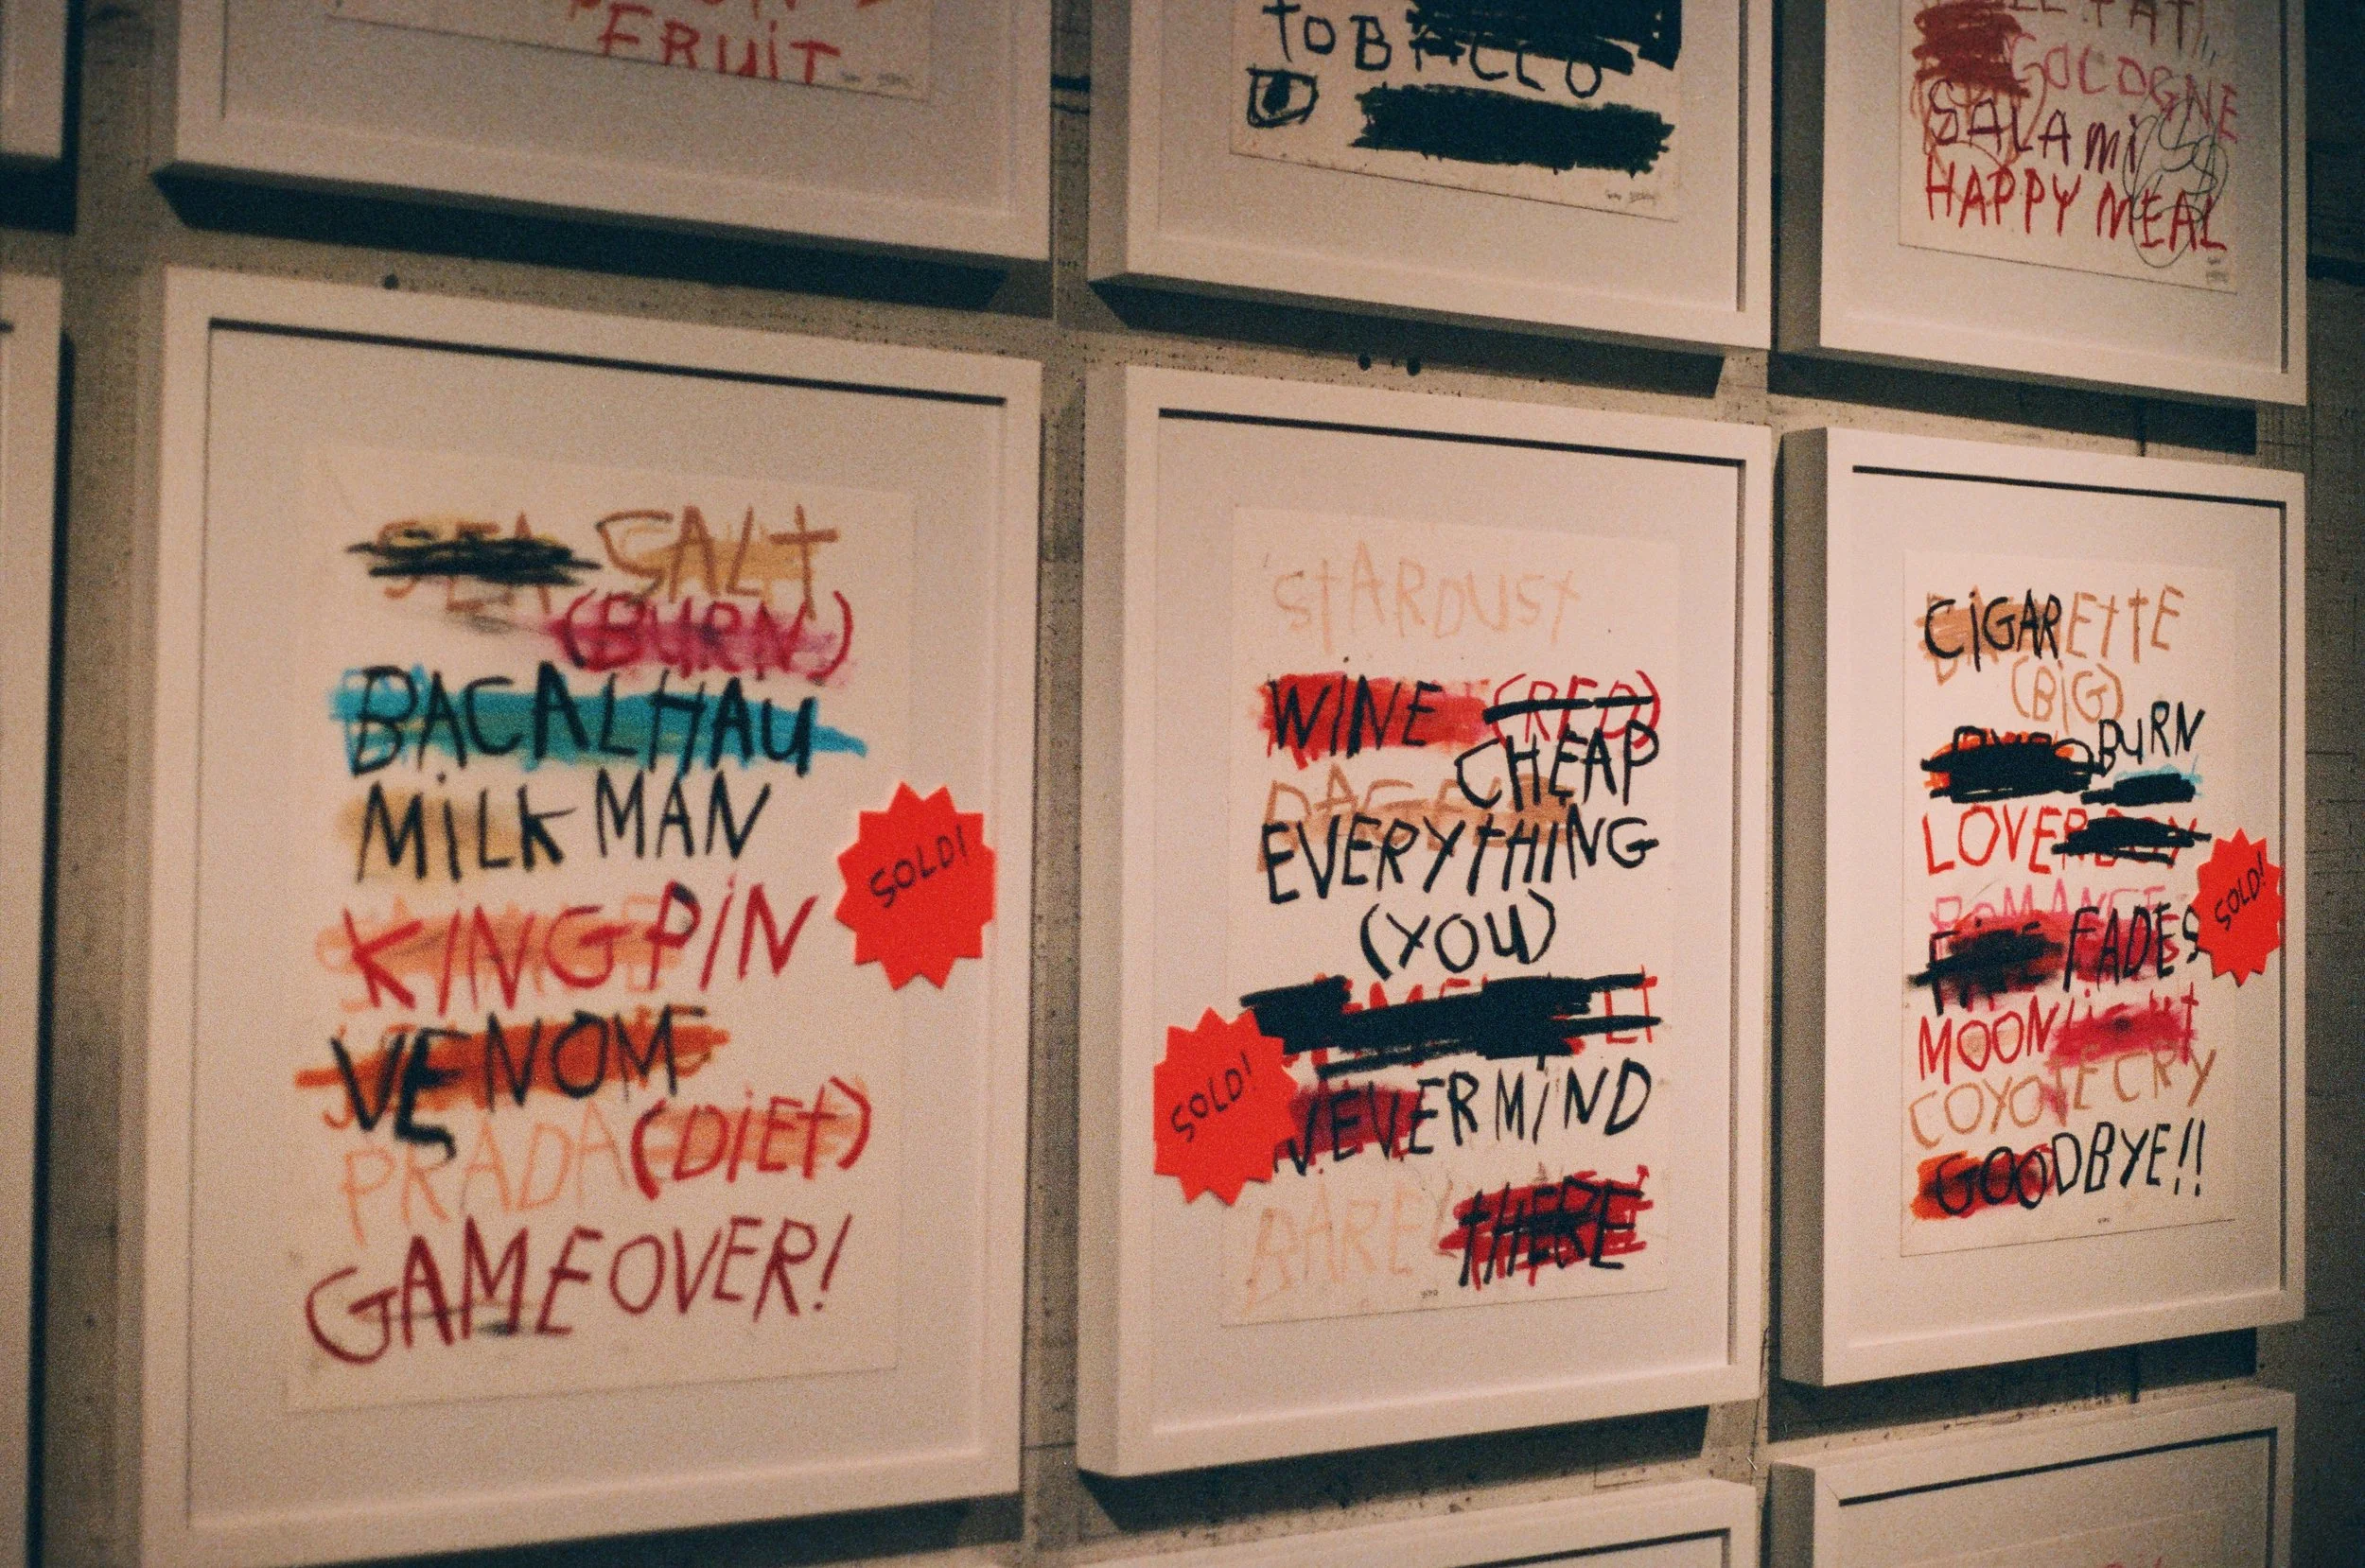 FRUiT
tOBACCO
COLOGNE
SALAMi
HAPPY MEAL
SEA SALt
(BURN)
BACALHAU
MiLKMAN
KiNGPiN
VENOM
PRADA (DiEt)
GAMEOVER!
SOLD!
StARDUSt
WiNE (RED)
CHEAP
EVERYtHING
(YOU)
NEVERMiND
BARELY tHERE
SOLD!
CiGAREttE
(BiG)
BURN
LOVERBOY
ROMANCE
FADES
MOONLiGHt
COYOtE CRY
GOODBYE!!
SOLD!